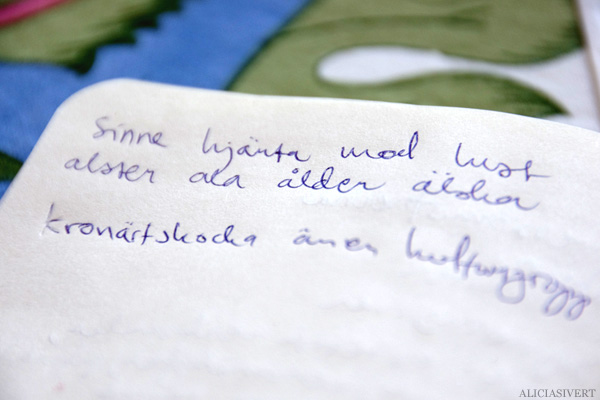 Sinne hjärta mod lust
alster ala ålder älska
kronärtskocka ämen
ALICIASIVERT